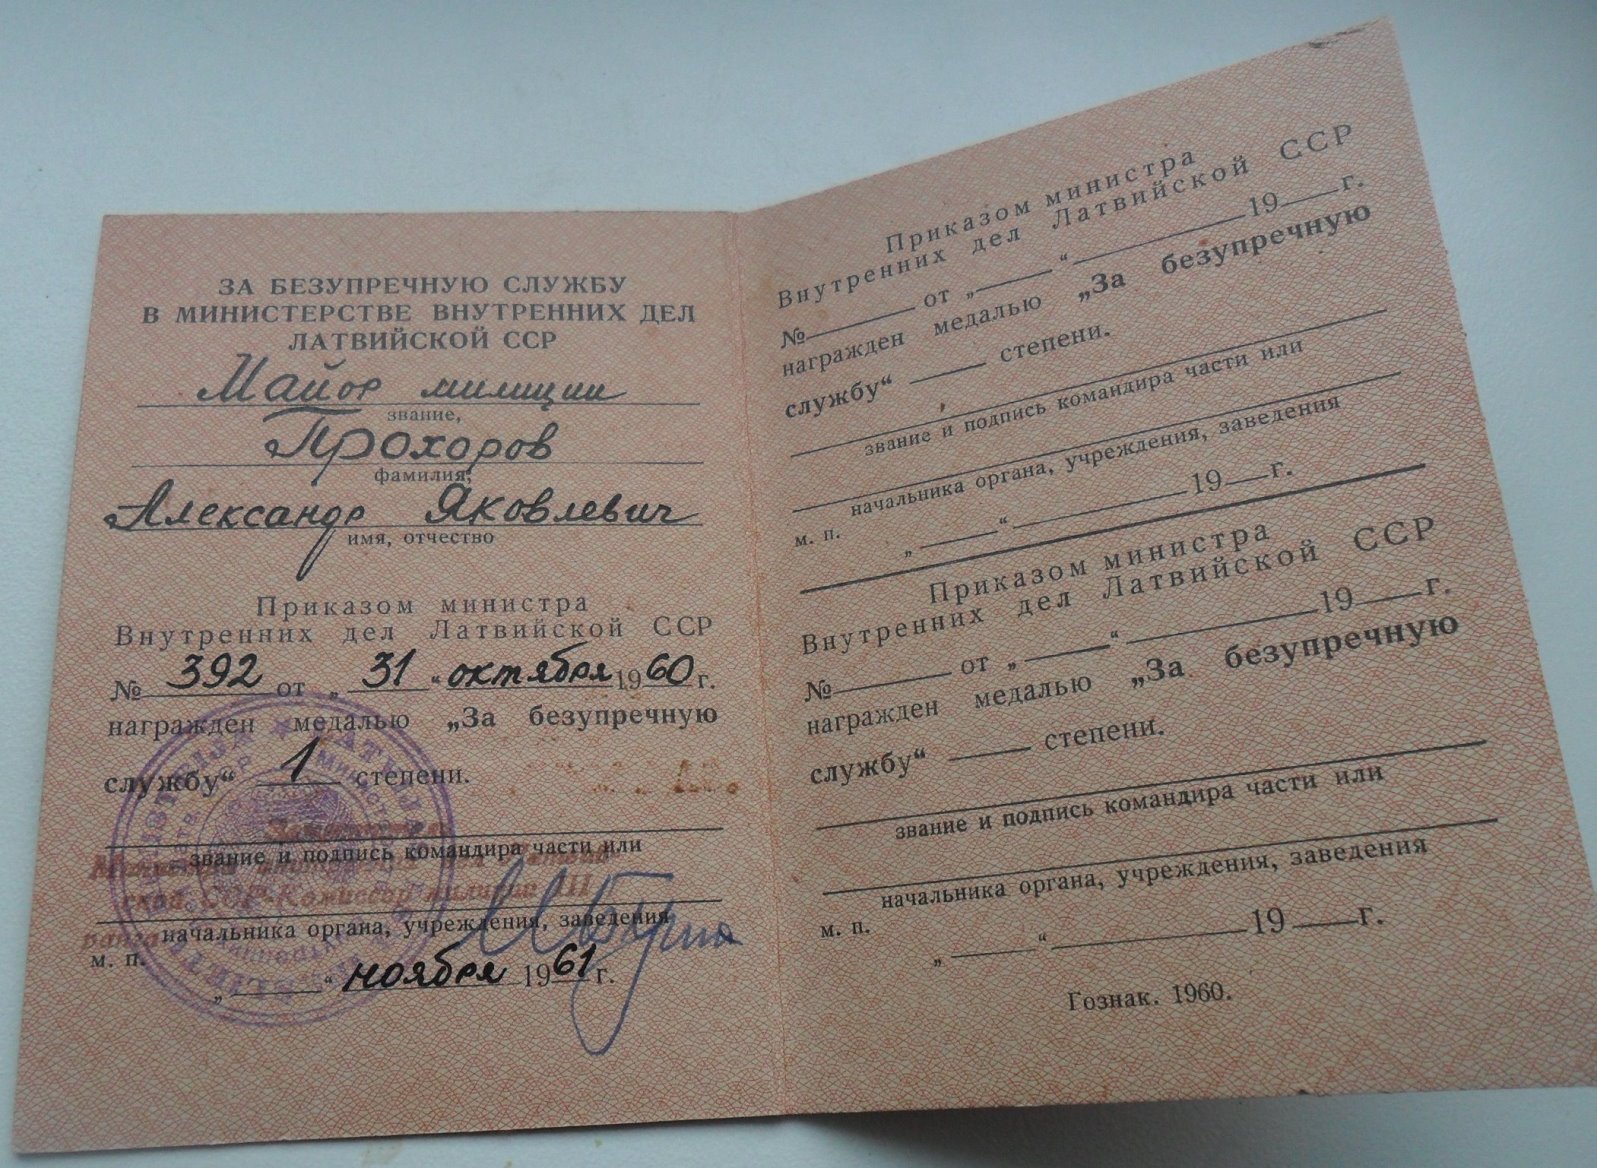 ЗА БЕЗУПРЕЧНУЮ СЛУЖБУ
В МИНИСТЕРСТВЕ ВНУТРЕННИХ ДЕЛ
ЛАТВИЙСКОЙ ССР
Майор милиции
звание,
Прохоров
фамилия,
Александр Яковлевич
имя, отчество
Приказом министра
Внутренних дел Латвийской ССР
№ 392 от „ 31 “ октября 1960 г.
награжден медалью „За безупречную
службу“ 1 степени.
звание и подпись командира части или
ской ССР-Комиссар милиции III
ранга
начальника органа, учреждения, заведения
м. п.
„ “ ноября 1961 г.
Приказом министра
Внутренних дел Латвийской ССР
№ от „ “ 19 г.
награжден медалью „За безупречную
службу“ степени.
звание и подпись командира части или
начальника органа, учреждения, заведения
м. п.
„ “ 19 г.
Приказом министра
Внутренних дел Латвийской ССР
№ от „ “ 19 г.
награжден медалью „За безупречную
службу“ степени.
звание и подпись командира части или
начальника органа, учреждения, заведения
м. п.
„ “ 19 г.
Гознак. 1960.